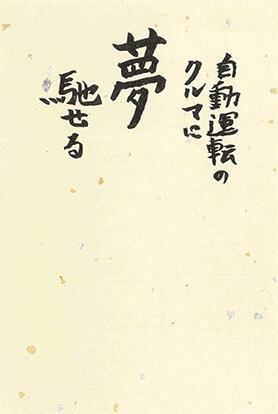 自動運転の
クルマに
夢
馳せる